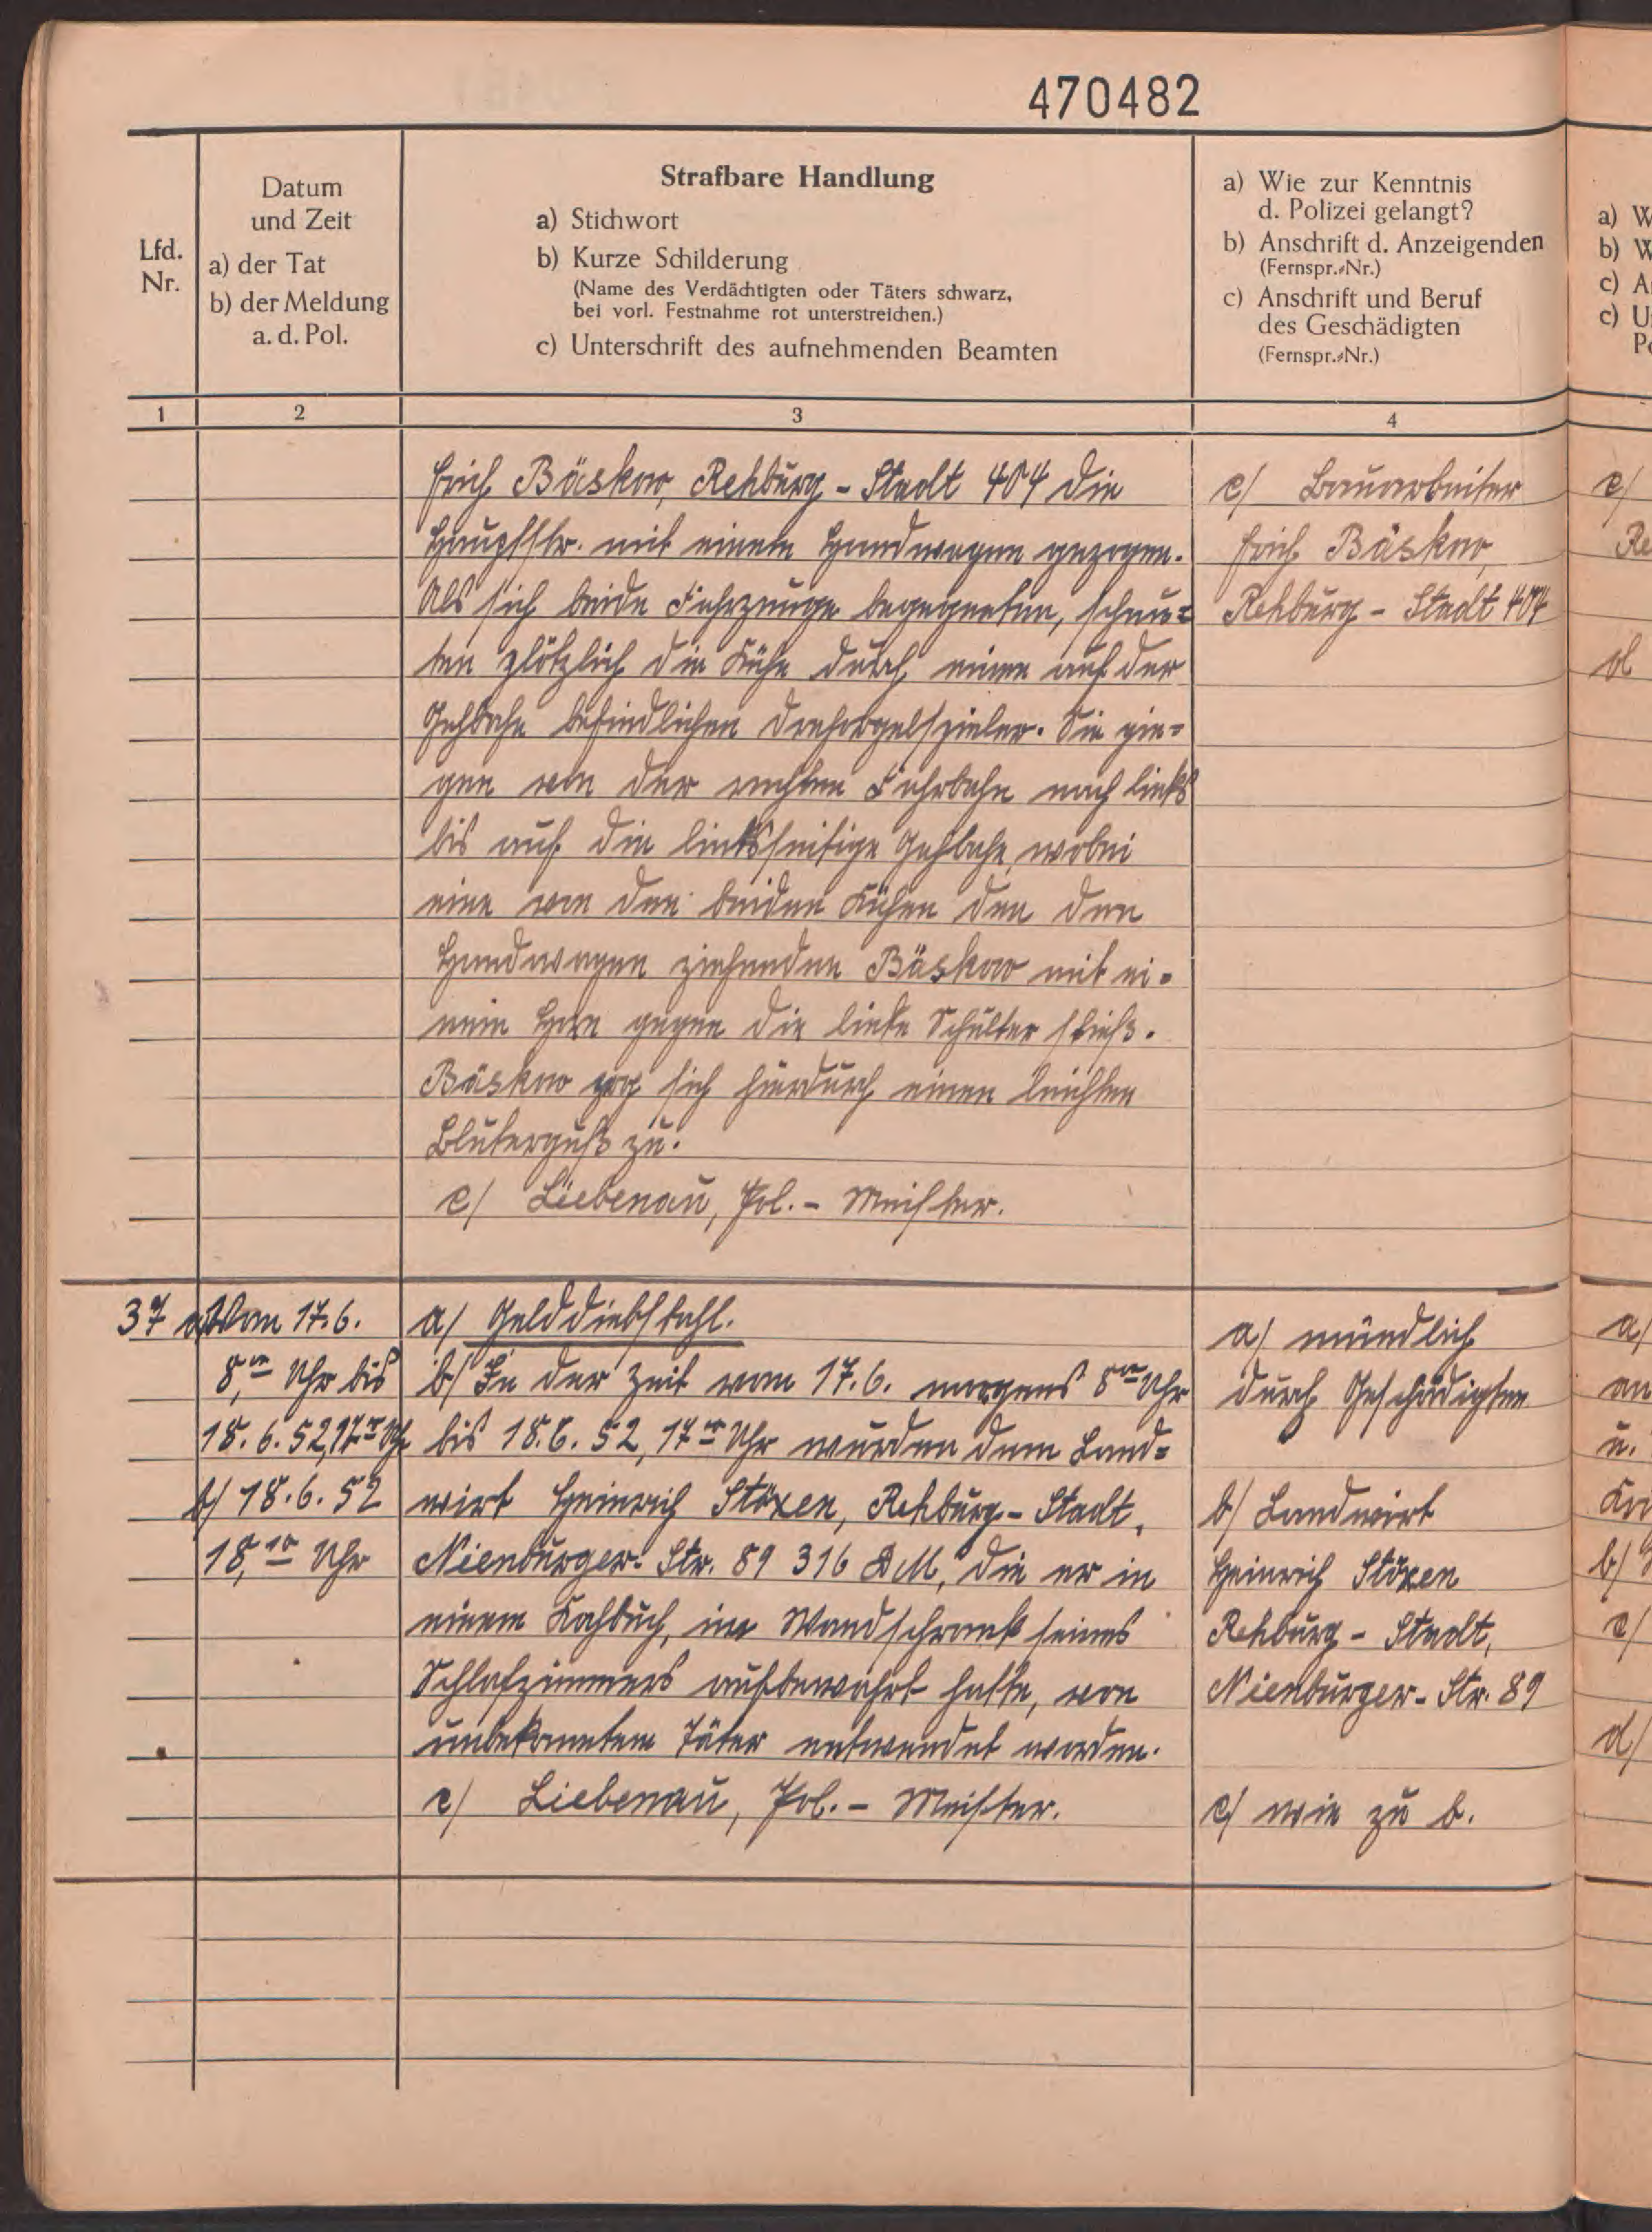 470482
Lfd.
Nr.
Datum
und Zeit
a) der Tat
b) der Meldung
a. d. Pol.
Strafbare Handlung
a) Stichwort
b) Kurze Schilderung
(Name des Verdächtigten oder Täters schwarz,
bei vorl. Festnahme rot unterstreichen.)
c) Unterschrift des aufnehmenden Beamten
a) Wie zur Kenntnis
d. Polizei gelangt?
b) Anschrift d. Anzeigenden
(Fernspr.-Nr.)
c) Anschrift und Beruf
des Geschädigten
(Fernspr.-Nr.)
1
2
3
4
Erich Bäskow, Rehburg - Stadt 404 die
Hauptstr. mit einem Handwagen gezogen.
Als sich beide Fahrzeuge begegneten, scheu=
ten plötzlich die Kühe durch einen auf der
Gehbahn befindlichen Drehorgelspieler. Sie gin=
gen von der rechten Fahrbahn nach links
bis auf die linksseitige Gehbahn, wobei
eine von den beiden Kühen den den
Handwagen ziehenden Bäskow mit ei=
nem Horn gegen die linke Schulter stieß.
Bäskow zog sich hierdurch einen leichten
Bluterguß zu.
c/ Liebenau, Pol. - Meister.
c/ Bauarbeiter
Erich Bäskow,
Rehburg - Stadt 404
37
a/ Vom 17.6.
8,00 Uhr bis
18.6.52, 17.00 Uhr
b/ 18.6.52
18,10 Uhr
a/ Gelddiebstahl.
b/ In der Zeit vom 17.6. morgens 8 00 Uhr
bis 18.6.52, 17 00 Uhr wurden dem Land=
wirt Heinrich Stöxen, Rehburg - Stadt,
Nienburger- Str. 89 316 DM, die er in
einem Kochbuch, im Wandschrank seines
Schlafzimmers aufbewahrt hatte, von
unbekanntem Täter entwendet worden.
c/ Liebenau, Pol. - Meister.
a/ mündlich
durch Geschädigten
b/ Landwirt
Heinrich Stöxen
Rehburg - Stadt,
Nienburger- Str. 89
c/ wie zu b.